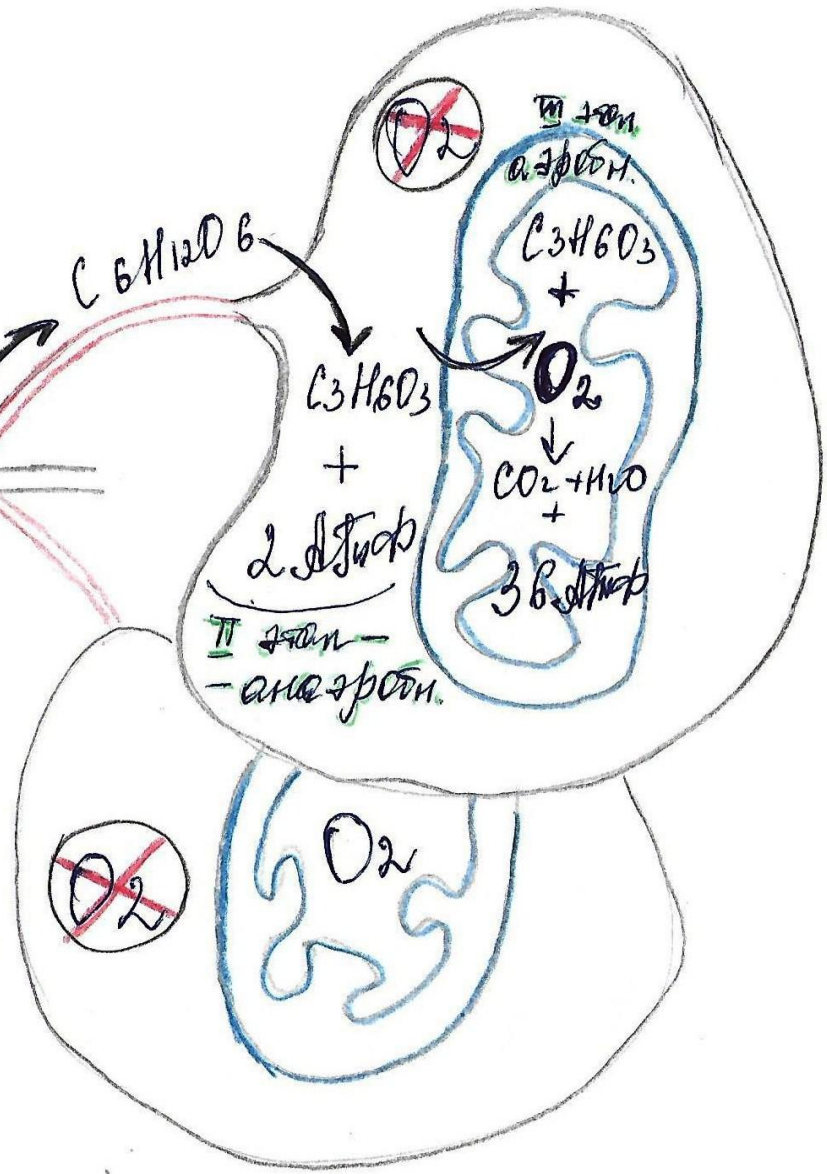 O2
III этап
аэробн.
C6H12O6
C3H6O3
+
O2
↓
CO2 + H2O
+
36 АТиф
C3H6O3
+
2 АТиф
II этап –
– анаэробн.
O2
O2